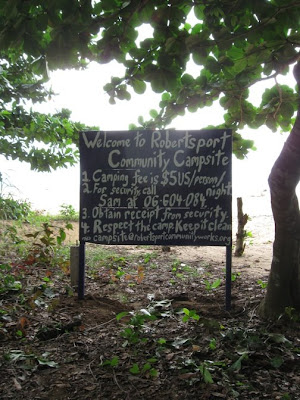 Welcome to Robertsport
Community Campsite
1. Camping fee is $5US/person/
night
2. For security call
Sam at 06-604-084.
3. Obtain receipt from security.
4. Respect the camp. Keep it clean
campsite@robertsportcommunityworks.org